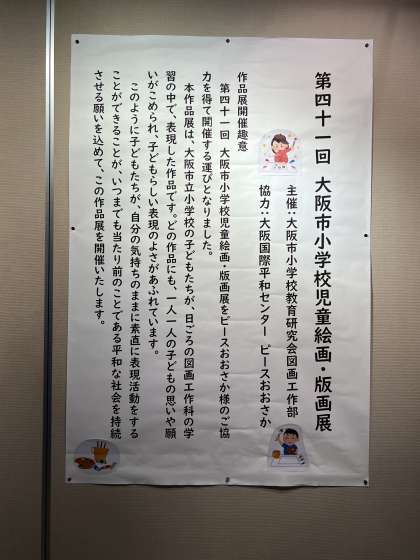 第四十一回 大阪市小学校児童絵画・版画展
主催：大阪市小学校教育研究会図画工作部
協力：大阪国際平和センター ピースおおさか
作品展開催趣意
第四十一回 大阪市小学校児童絵画・版画展をピースおおさか様のご協
力を得て開催する運びとなりました。
本作品展は、大阪市立小学校の子どもたちが、日ごろの図画工作科の学
習の中で、表現した作品です。どの作品にも、一人一人の子どもの思いや願
いがこめられ、子どもらしい表現のよさがあふれています。
このように子どもたちが、自分の気持ちのままに素直に表現活動をする
ことができることが、いつまでも当たり前のことである平和な社会を持続
させる願いを込めて、この作品展を開催いたします。